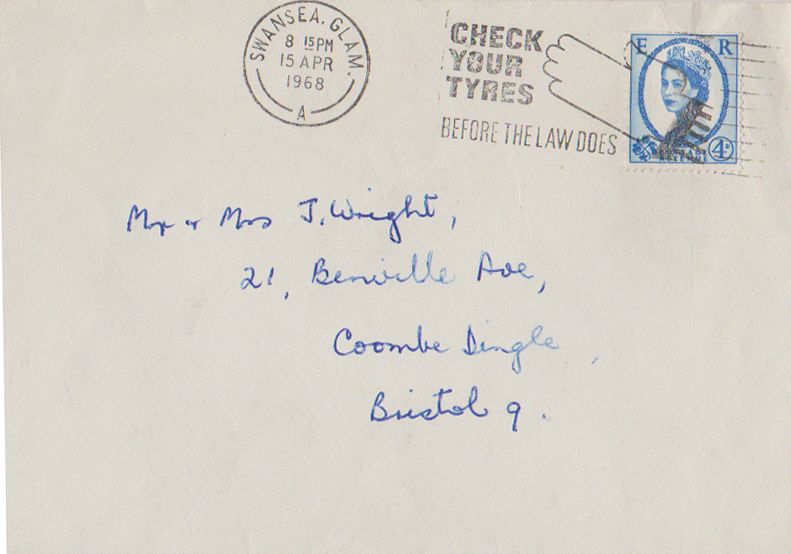 SWANSEA. GLAM.
8 15PM
15 APR
1968
A
CHECK
YOUR
TYRES
BEFORE THE LAW DOES
E R
POSTAGE
REVENUE
4D
Mr & Mrs J. Wright,
21, Benville Ave,
Coombe Dingle,
Bristol 9.